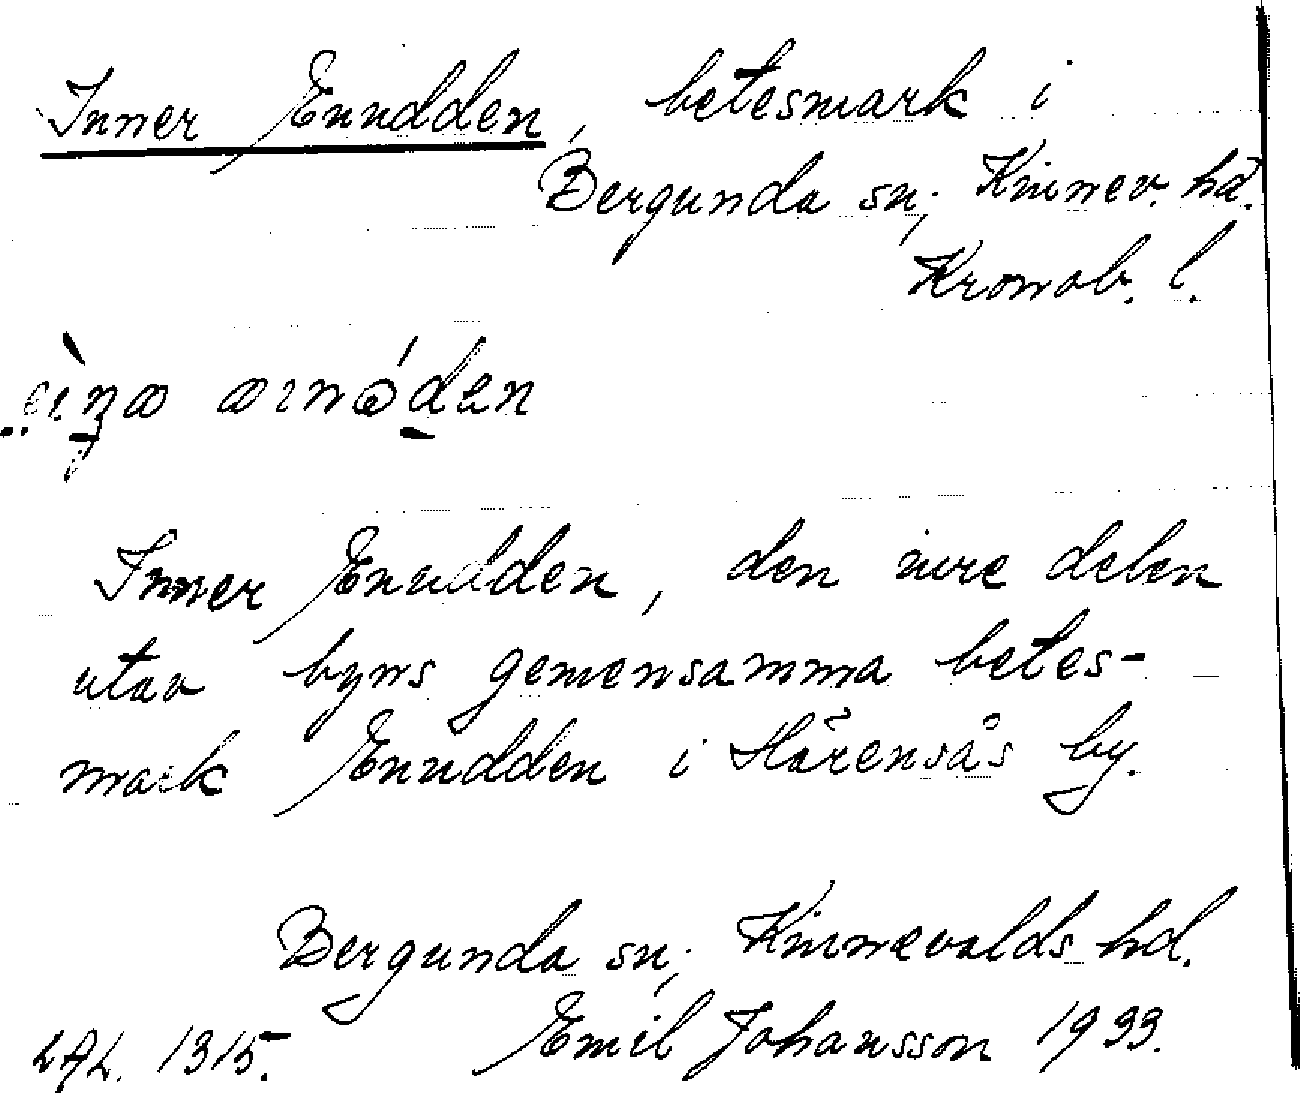 Inner Enudden, betesmark i
Bergunda sn, Kinnev. hd.
Kronob. l.
Inner Enudden, den inre delen
utav byns gemensamma betes-
mark Enudden i Härensås by.
Bergunda sn, Kinnevalds hd.
LAL. 1315. Emil Johansson 1933.